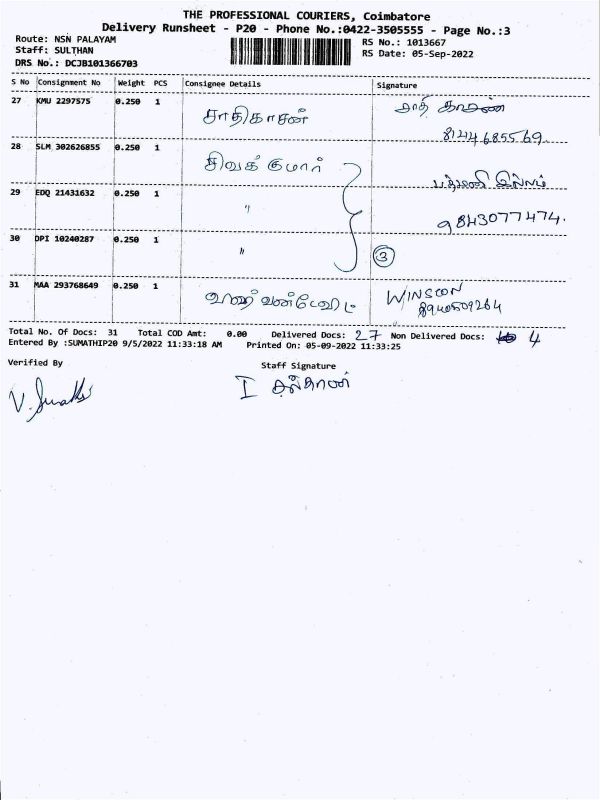 THE PROFESSIONAL COURIERS, Coimbatore
Delivery Runsheet - P20 - Phone No.:0422-3505555 - Page No.:3
Route: NSN PALAYAM
RS No.: 1013667
Staff: SULTHAN
RS Date: 05-Sep-2022
DRS No.: DCJB101366703
S No Consignment No Weight PCS Consignee Details Signature
27 KMU 2297575 0.250 1 சாதிகாசன்
8124685569
28 SLM 302626855 0.250 1 சிவக்குமார்
பத்மணி இல்லம்
29 EDQ 21431632 0.250 1 "
9843077474.
30 DPI 10240287 0.250 1 "
3
31 MAA 293768649 0.250 1 WINSCON
Total No. Of Docs: 31 Total COD Amt: 0.00 Delivered Docs: 27 Non Delivered Docs: 4
Entered By :SUMATHIP20 9/5/2022 11:33:18 AM Printed On: 05-09-2022 11:33:25
Verified By Staff Signature